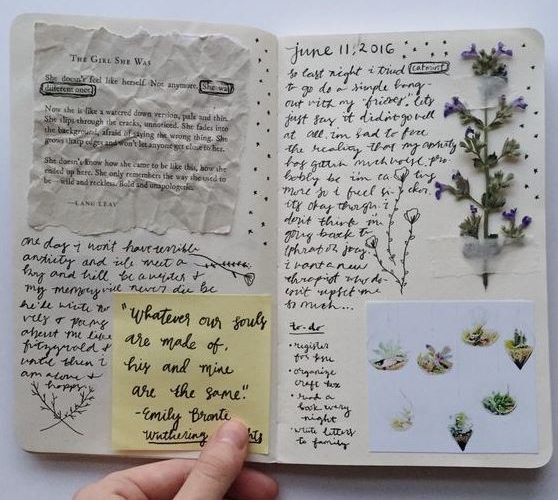 THE GIRL SHE WAS
She doesn't feel like herself. Not anymore. She was
different once.
Now she is like a watered down version, pale and thin.
She slips through the cracks, unnoticed. She fades into
the background, afraid of saying the wrong thing. She
grows sharp edges and won't let anyone get close to her.
She doesn't know how she came to be like this, how she
ended up here. She only remembers the way she used to
be—wild and reckless. Bold and unapologetic.
—LANG LEAV
one day i won't have terrible
anxiety and i'll meet a
boy and he'll be a writer &
my memory will never die bc
he'll write no
vels & poems
about me like
fitzgerald &
until then i
am alone &
happy
"Whatever our souls
are made of,
his and mine
are the same."
-Emily Bronte
Wuthering
june 11, 2016
so last night i tried
to go do a simple hang-
out with my "friends". let's
just say it didn't go well
at all. im sad to face
the reality that my anxiety
has gotten much worse pro-
bably bc im
more so i feel
its okay though i
don't think im
going back to
i want a new
therapist who do-
esn't upset me
so much...
to-do
• register
for
• organize
craft box
• read a
book every
night
• write letters
to family